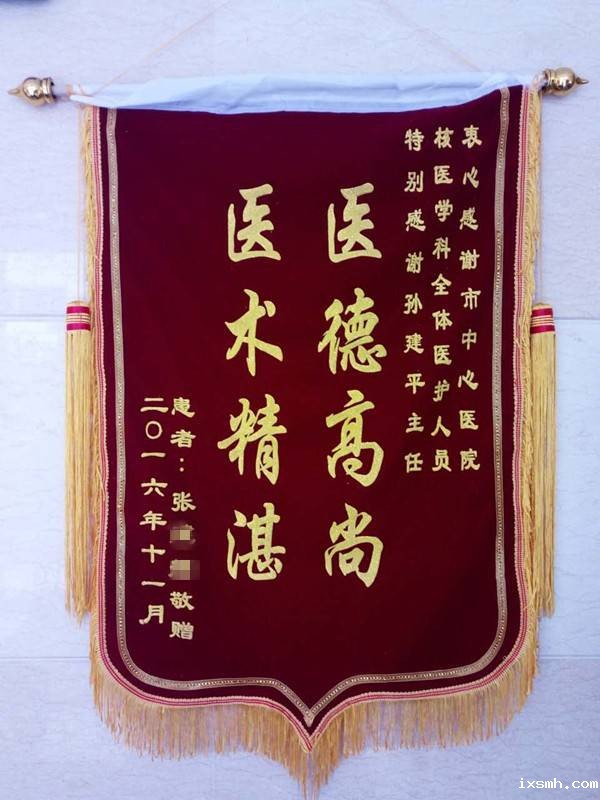 衷心感谢市中心医院
核医学科全体医护人员
特别感谢孙建平主任
医德高尚
医术精湛
患者：张敬赠
二〇一六年十一月
ixsmh.com